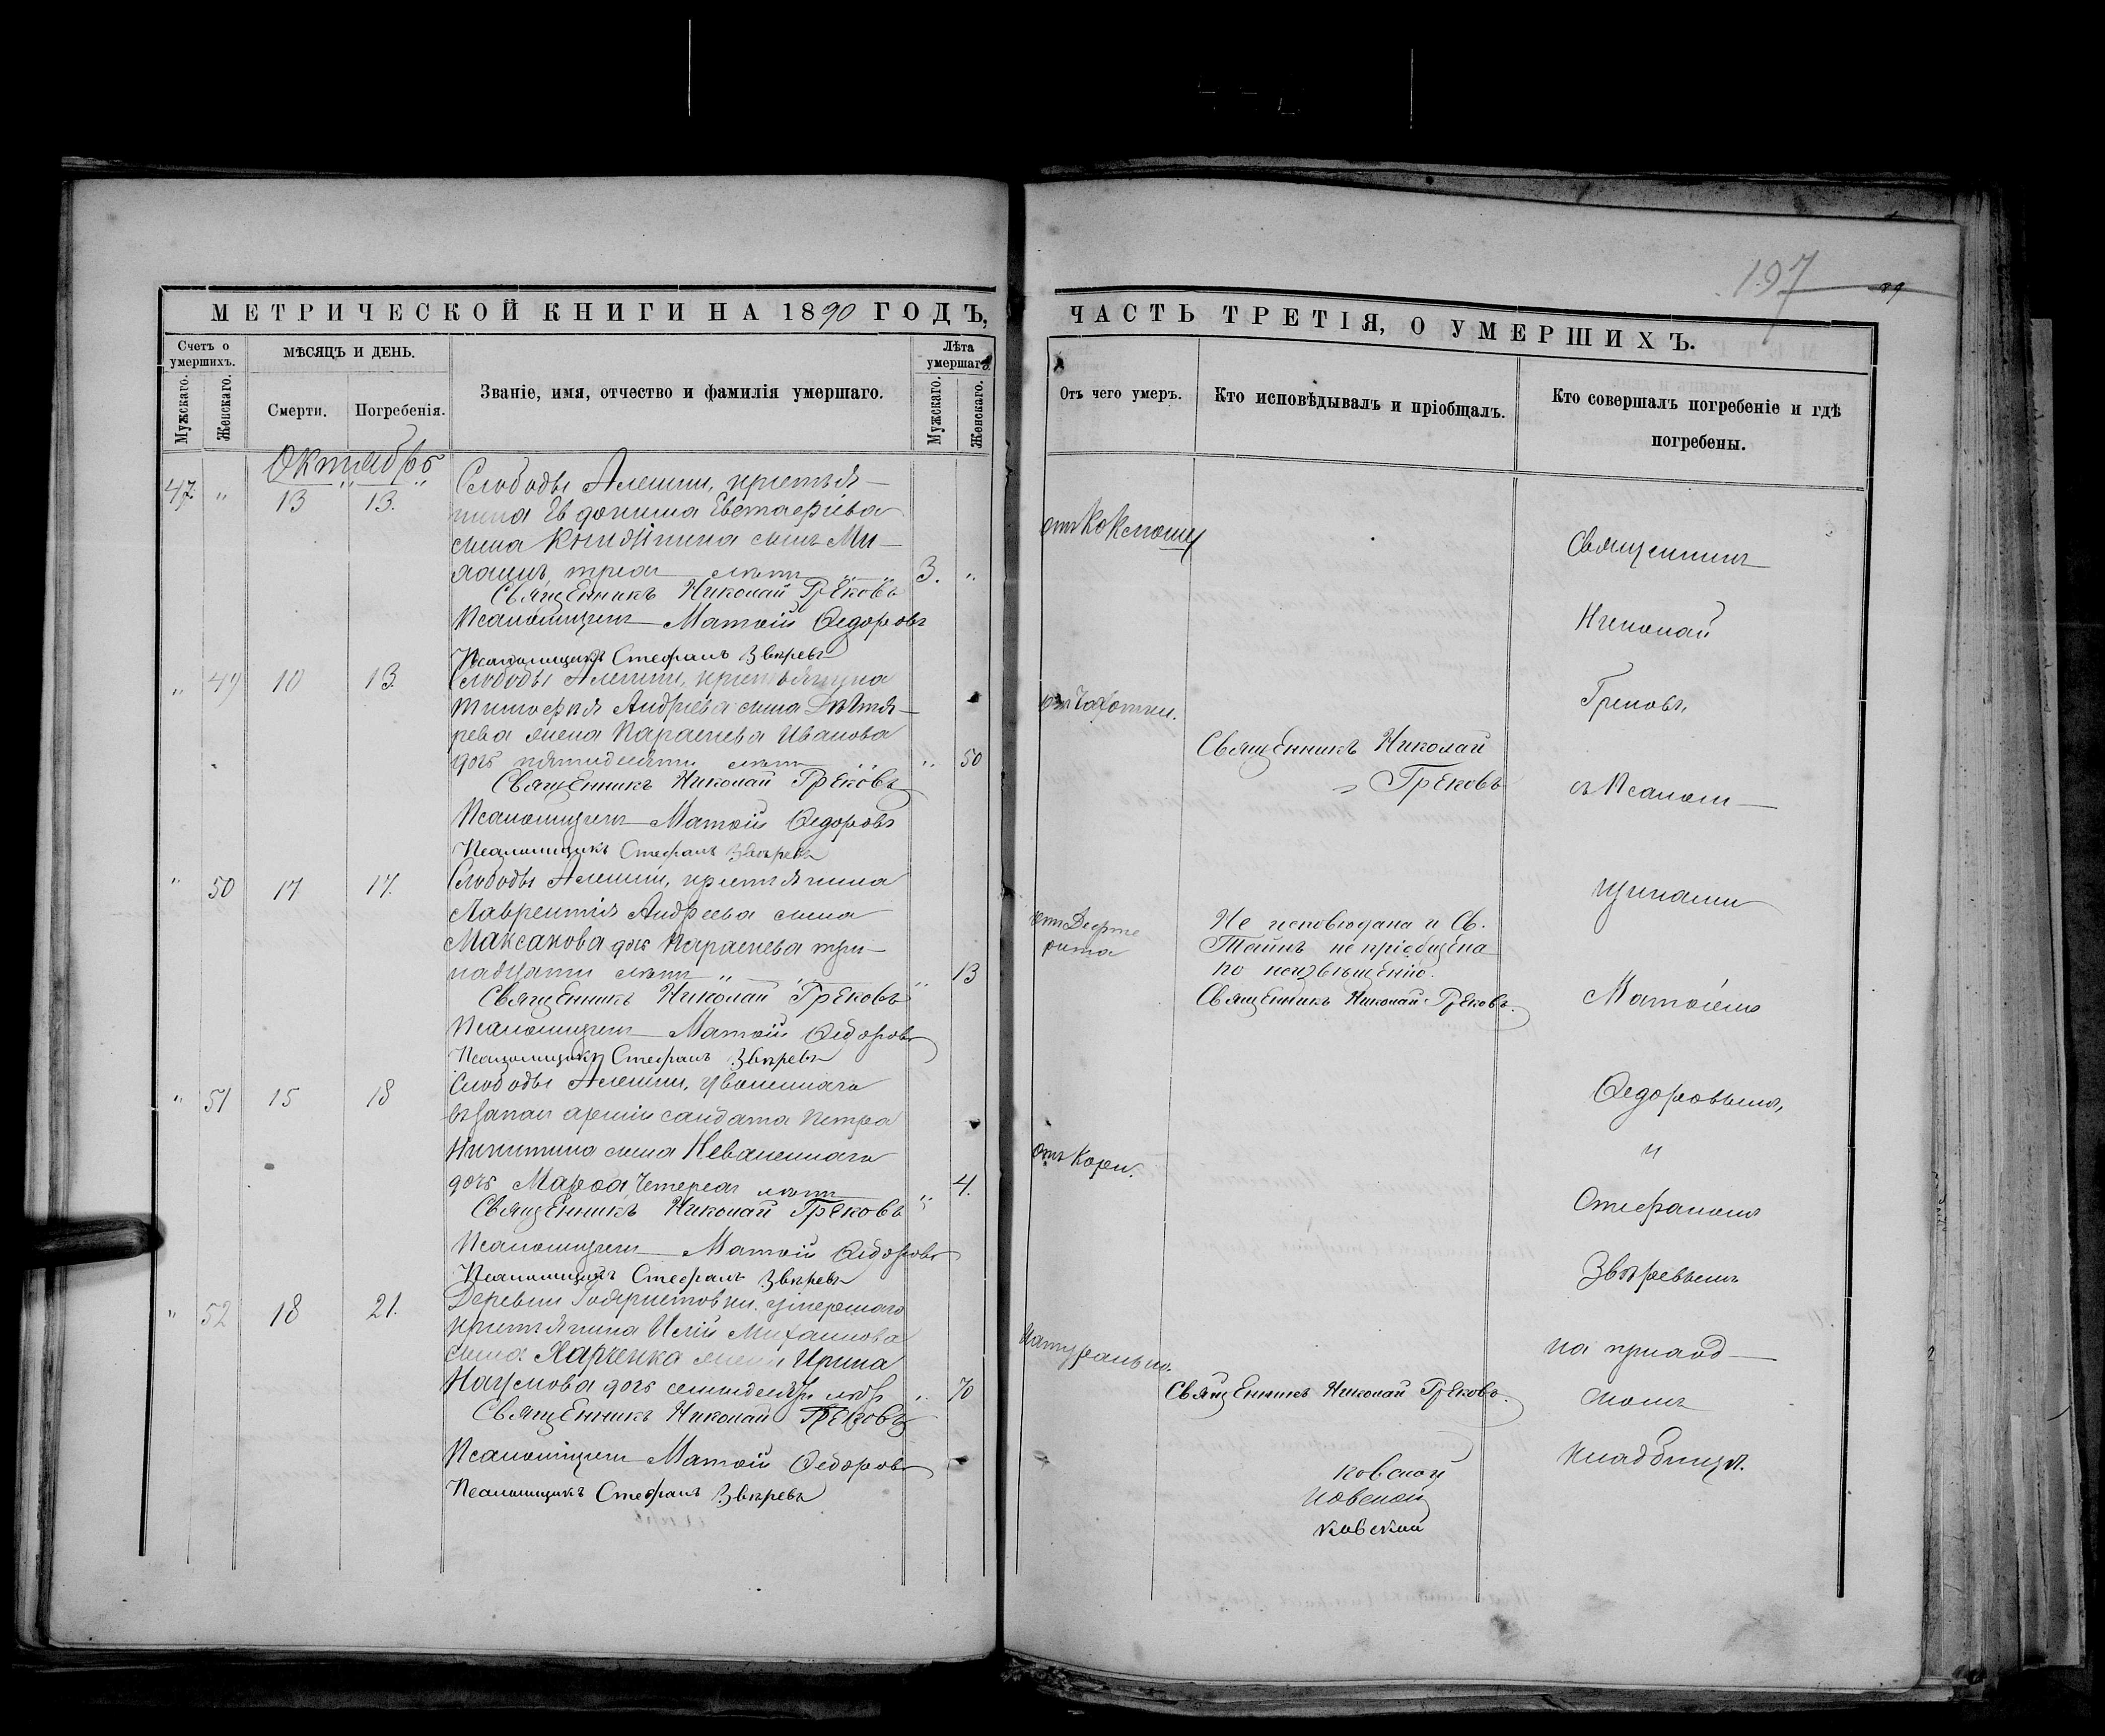 197
89
МЕТРИЧЕСКОЙ КНИГИ НА 1890 ГОДЪ,
Счетъ о умершихъ.
МѢСЯЦЪ И ДЕНЬ.
Званіе, имя, отчество и фамилія умершаго.
Лѣта умершаго.
Мужскаго.
Женскаго.
Смерти.
Погребенія.
Мужскаго.
Женскаго.
Октябрь
47 " 13 13. Слободы Алешни, крестья-
нина Евдокима Евстафіева
сына сынъ Ми-
трехъ лѣтъ 3. "
Священникъ Николай Грековъ
Псаломщикъ Матѳій Ѳедоровъ
Псаломщикъ Стефанъ Звѣревъ
" 49 10 13. Слободы Алешни, крестьянина
Тимофея Андріева сына Дѣхтя-
рева жена Параскева Иванова
дочь пятидесяти лѣтъ " 50
Священникъ Николай Грековъ
Псаломщикъ Матѳій Ѳедоровъ
Псаломщикъ Стефанъ Звѣревъ
" 50 17 17. Слободы Алешни, крестьянина
Лаврентія Андреева сына
Максакова дочь Параскева три-
надцати лѣтъ " 13
Священникъ Николай Грековъ
Псаломщикъ Матѳій Ѳедоровъ
Псаломщикъ Стефанъ Звѣревъ
" 51 15 18 Слободы Алешни, уволеннаго
въ запас арміи солдата Петра
Никитина сына
дочь Марѳа, четырехъ лѣтъ " 4.
Священникъ Николай Грековъ
Псаломщикъ Матѳій Ѳедоровъ
Псаломщикъ Стефанъ Звѣревъ
" 52 18 21. Деревни умершаго
крестьянина Иліи Михайлова
сына Харченка жена Ирина
Наумова дочь семидесяти лѣтъ " 70
Священникъ Николай Грековъ
Псаломщикъ Матѳій Ѳедоровъ
Псаломщикъ Стефанъ Звѣревъ
ЧАСТЬ ТРЕТІЯ, О УМЕРШИХЪ.
Отъ чего умеръ.
Кто исповѣдывалъ и пріобщалъ.
Кто совершалъ погребеніе и гдѣ погребены.
отъ Коклюшу
отъ Чахотки.
Священникъ Николай
Грековъ
отъ Дифте
рита
Не исповѣдана и Св.
Таинъ не пріобщена
по неизвѣщенію.
Священникъ Николай Грековъ.
отъ Кори.
Натурально.
Священникъ Николай Грековъ.
ковской
ковской
ковской
Священникъ
Николай
Грековъ,
съ Псалом-
щиками
Матѳіемъ
Ѳедоровымъ,
и
Стефаномъ
Звѣревымъ
на приход-
скомъ
кладбищѣ.